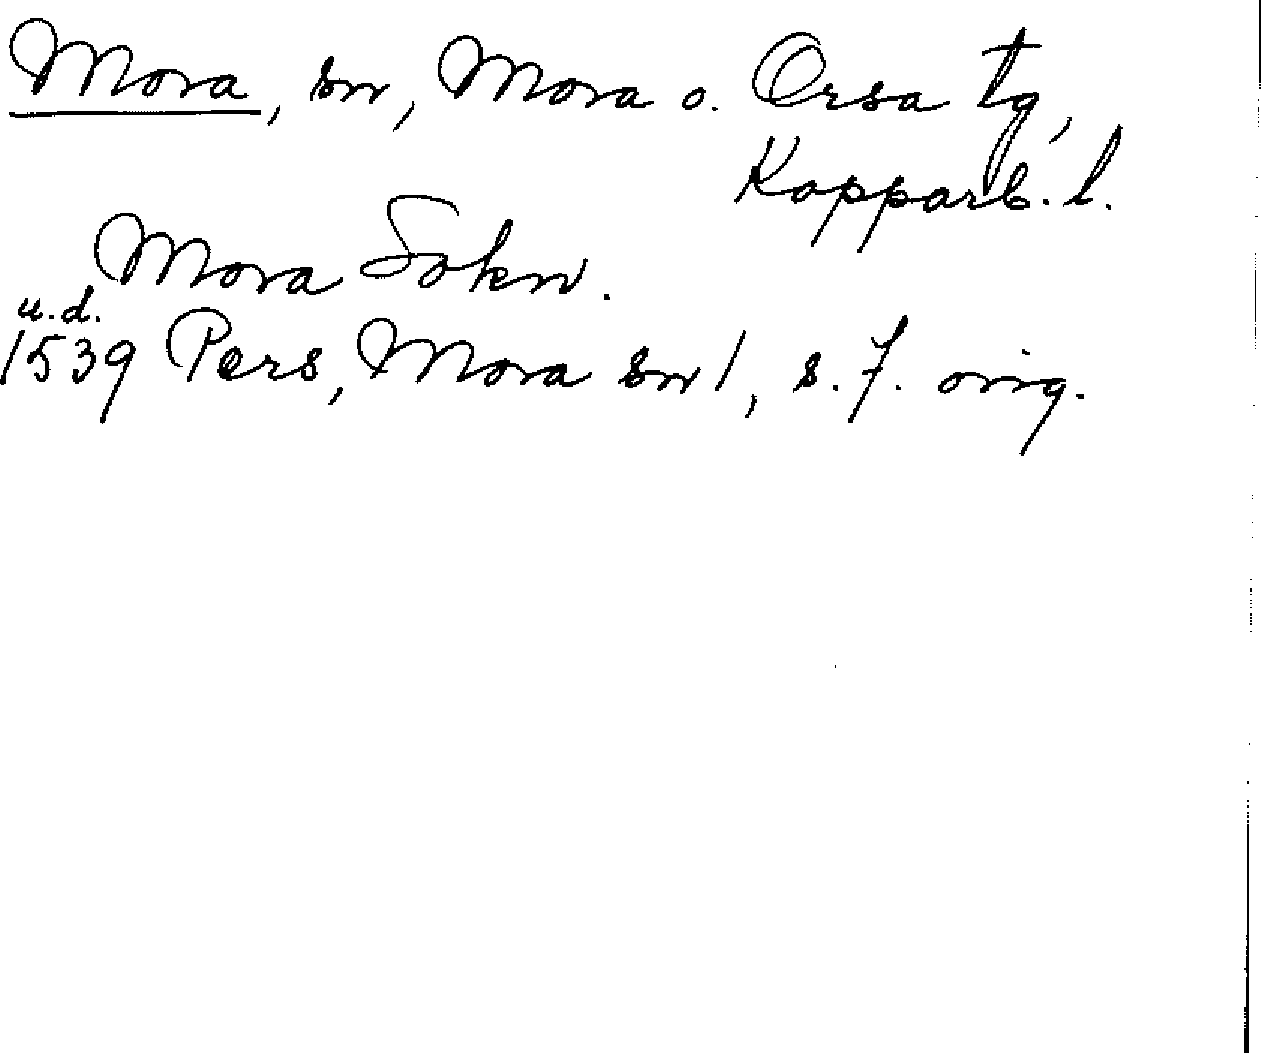 Mora, sn, Mora o. Orsa tg,
Kopparb. l.
Mora Sokn.
u.d.
1539 Pers, Mora sn 1, s. 7. orig.